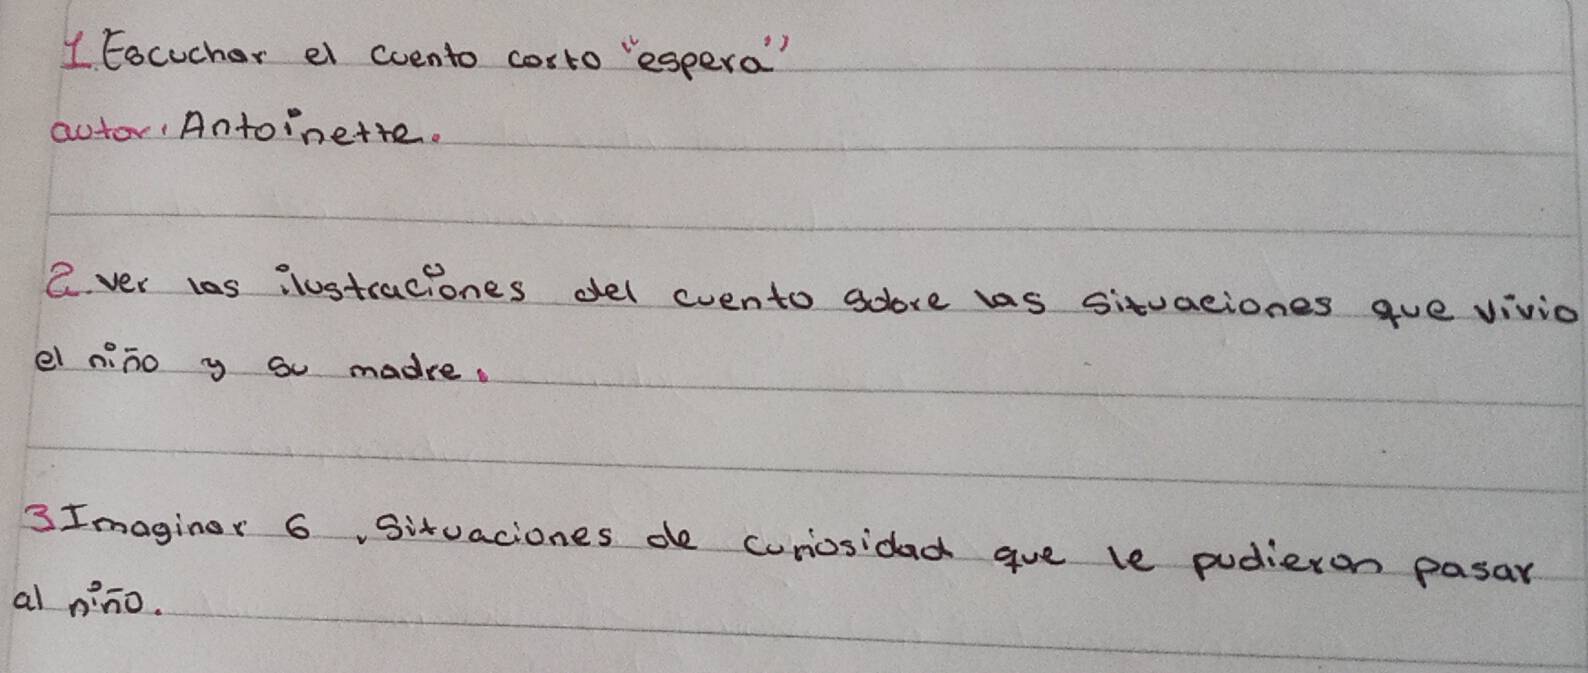 1. Escuchar el cuento corto "espera"
autor: Antoinette.
2. ver las ilustraciones del cuento sobre las situaciones que vivio
el niño y su madre.
3 Imaginar 6 , situaciones de curiosidad que le pudieron pasar
al niño.